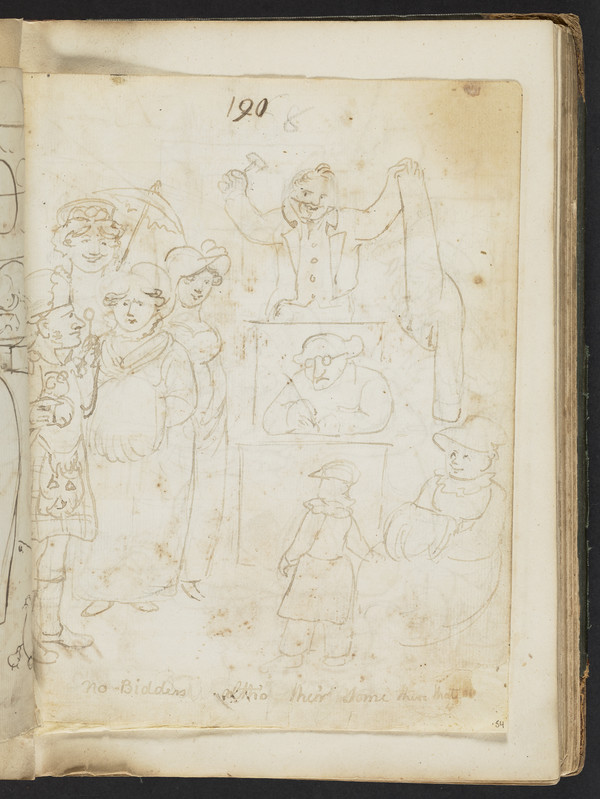 190
8
no Bidders altho their some
54